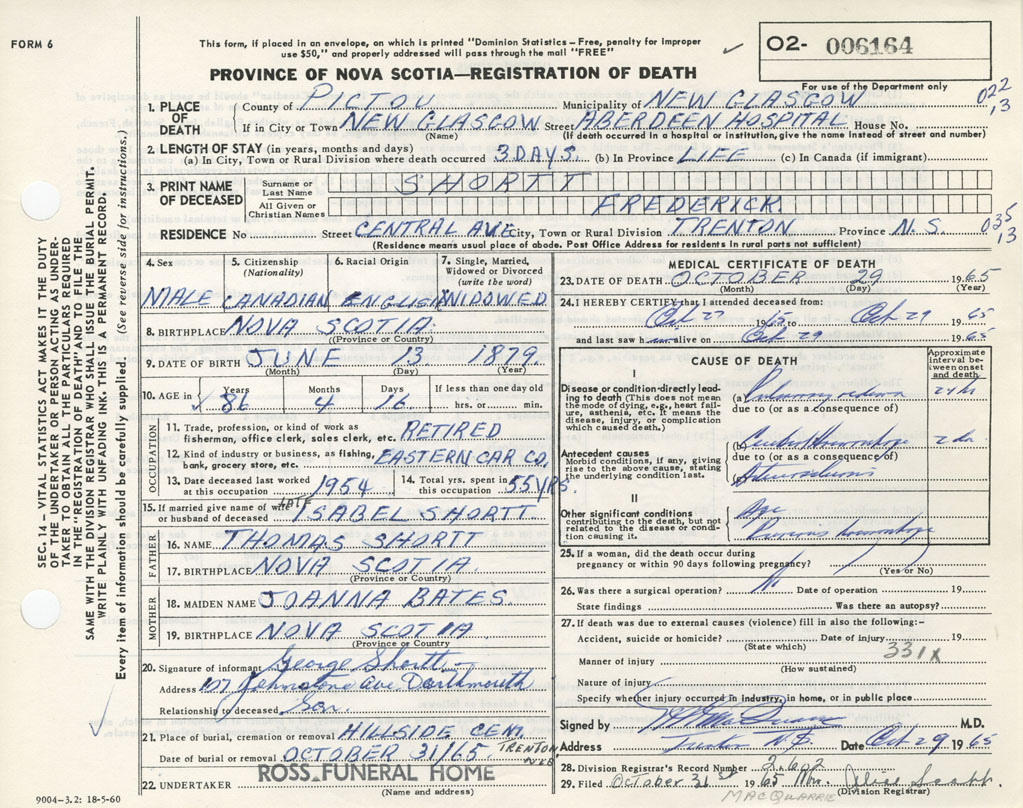 FORM 6
This form, if placed in an envelope, on which is printed "Dominion Statistics – Free, penalty for improper
use $50," and properly addressed will pass through the mail "FREE"
PROVINCE OF NOVA SCOTIA—REGISTRATION OF DEATH
02- 006164
For use of the Department only
022
13
1. PLACE OF DEATH
County of PICTOU Municipality of NEW GLASGOW
If in City or Town NEW GLASGOW Street ABERDEEN HOSPITAL House No.
(Name) (If death occurred in a hospital or institution, give the name instead of street and number)
2. LENGTH OF STAY (in years, months and days)
(a) In City, Town or Rural Division where death occurred 3 DAYS. (b) In Province LIFE (c) In Canada (if immigrant)
3. PRINT NAME OF DECEASED
Surname or Last Name SHORTT
All Given or Christian Names FREDERICK
RESIDENCE No. Street CENTRAL AVE City, Town or Rural Division TRENTON Province N.S.
035
13
(Residence means usual place of abode. Post Office Address for residents in rural parts not sufficient)
4. Sex 5. Citizenship (Nationality) 6. Racial Origin 7. Single, Married, Widowed or Divorced (write the word)
MALE CANADIAN ENGLISH WIDOWED
8. BIRTHPLACE NOVA SCOTIA
(Province or Country)
9. DATE OF BIRTH JUNE 13 1879
(Month) (Day) (Year)
10. AGE in Years Months Days If less than one day old
86 4 16 hrs. or min.
OCCUPATION
11. Trade, profession, or kind of work as
fisherman, office clerk, sales clerk, etc. RETIRED
12. Kind of industry or business, as fishing,
bank, grocery store, etc. EASTERN CAR CO.
13. Date deceased last worked at this occupation 1954 14. Total yrs. spent in this occupation 55 YRS.
15. If married give name of wife or husband of deceased LATE ISABEL SHORTT
FATHER
16. NAME THOMAS SHORTT
17. BIRTHPLACE NOVA SCOTIA
(Province or Country)
MOTHER
18. MAIDEN NAME JOANNA BATES.
19. BIRTHPLACE NOVA SCOTIA
(Province or Country)
20. Signature of informant George Shortt
Address 107 Johnstone Ave Dartmouth
Relationship to deceased Son.
21. Place of burial, cremation or removal HILLSIDE CEM.
TRENTON
Date of burial or removal OCTOBER 31/65
ROSS FUNERAL HOME
22. UNDERTAKER
(Name and address)
9004-3.2: 18-5-60
MEDICAL CERTIFICATE OF DEATH
23. DATE OF DEATH OCTOBER 29 1965
(Month) (Day) (Year)
24. I HEREBY CERTIFY that I attended deceased from:
Oct 27 1965 to Oct 29 1965
and last saw h im alive on Oct 29 1965
CAUSE OF DEATH
Approximate interval between onset and death
I
Disease or condition directly leading to death (This does not mean the mode of dying, e.g., heart failure, asthenia, etc. It means the disease, injury, or complication which caused death.)
(a) Pulmonary edema
due to (or as a consequence of)
Antecedent causes
Morbid conditions, if any, giving rise to the above cause, stating the underlying condition last.
(b) Cerebral Hemorrhage 2 da
due to (or as a consequence of)
II
Other significant conditions
contributing to the death, but not related to the disease or condition causing it.
Age
Previous hemorrhage
25. If a woman, did the death occur during
pregnancy or within 90 days following pregnancy?
(Yes or No)
26. Was there a surgical operation? No Date of operation 19
State findings Was there an autopsy?
27. If death was due to external causes (violence) fill in also the following:–
Accident, suicide or homicide? Date of injury 19
(State which)
331X
Manner of injury
(How sustained)
Nature of injury
Specify whether injury occurred in industry, in home, or in public place
Signed by M.D.
Address Trenton N.S. Date Oct 29 1965
28. Division Registrar's Record Number 2602
29. Filed October 31st 1965
(Division Registrar)
MACQUARRIE
SEC. 14 — VITAL STATISTICS ACT MAKES IT THE DUTY
OF THE UNDERTAKER OR PERSON ACTING AS UNDER-
TAKER TO OBTAIN ALL THE PARTICULARS REQUIRED
IN THE "REGISTRATION OF DEATH" AND TO FILE THE
SAME WITH THE DIVISION REGISTRAR WHO SHALL ISSUE THE BURIAL PERMIT.
WRITE PLAINLY WITH UNFADING INK. THIS IS A PERMANENT RECORD.
Every item of information should be carefully supplied. (See reverse side for instructions.)